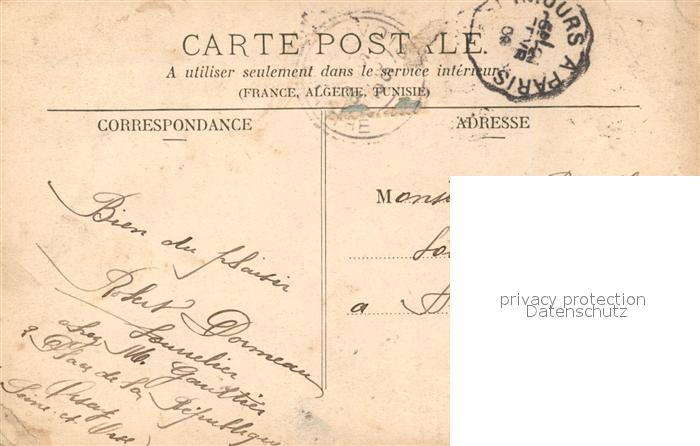 CARTE POSTALE.
A utiliser seulement dans le service intérieur
(FRANCE, ALGERIE, TUNISIE)
TOURS A PARIS
CORRESPONDANCE
ADRESSE
Bien du plaisir
Robert Dormeau
Sommelier
chez M. Gauthier
Place de la République
Seine et Oise
Mons
a
privacy protection
Datenschutz